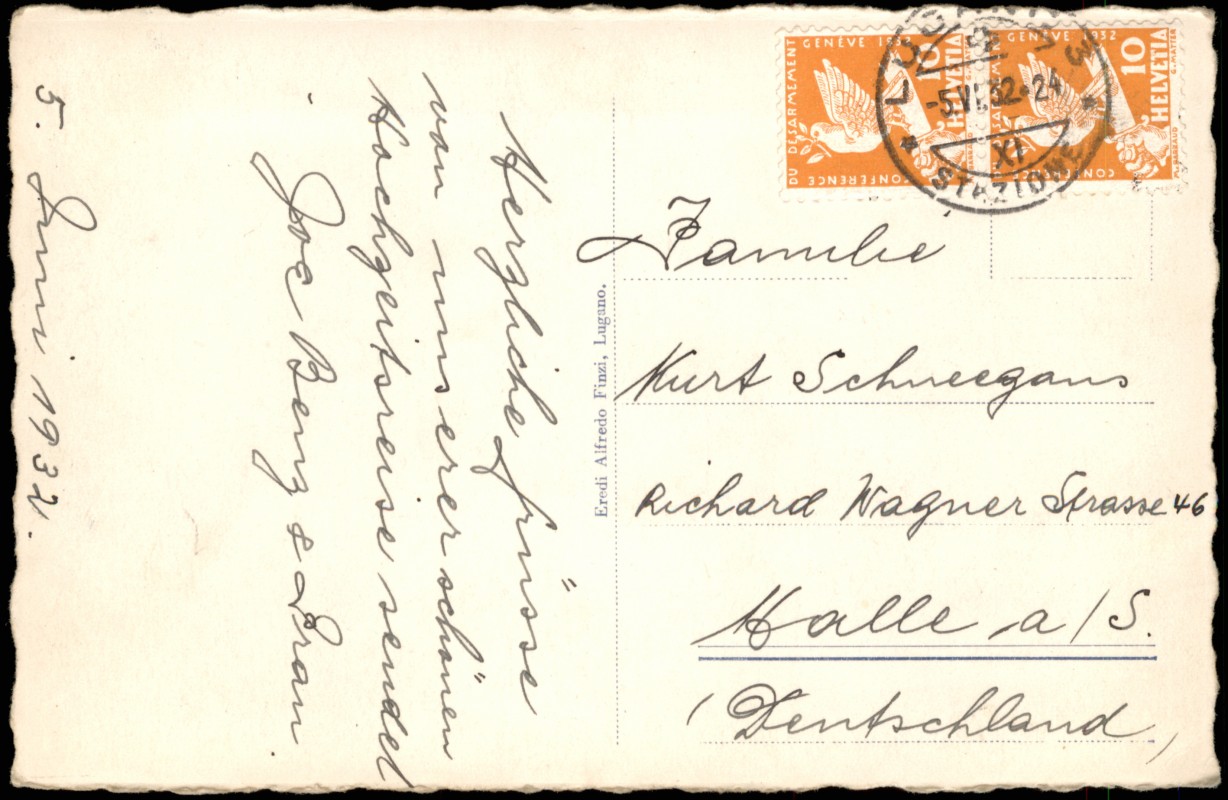 5. Juni 1932.
Herzliche Grüsse
von unserer schönen
Hochzeitsreise sendet
Joe Benz & Frau
Eredi Alfredo Finzi, Lugano.
CONFERENCE
DU DÉSARMEMENT
GENÈVE 1932
10
HELVETIA
CONFERENCE
GENÈVE 1932
10
HELVETIA
LUGANO 3
-5.VI.32.-24
XI
STAZIONE
Familie
Kurt Schneegans
Richard Wagner Strasse 46
Halle a/S.
(Deutschland)